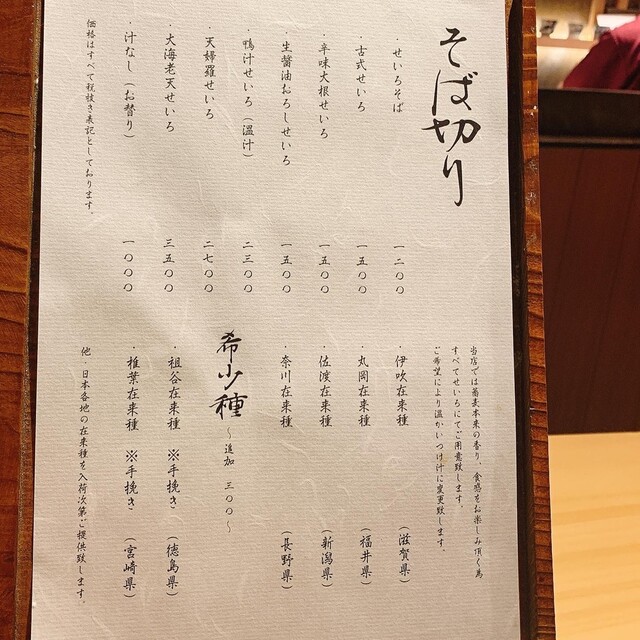 そば切り
・せいろそば 一二〇〇
・古式せいろ 一五〇〇
・辛味大根せいろ 一五〇〇
・生醤油おろしせいろ 一五〇〇
・鴨汁せいろ（温汁） 二三〇〇
・天婦羅せいろ 二七〇〇
・大海老天せいろ 三五〇〇
・汁なし（お替り） 一〇〇〇
価格はすべて税抜き表記としております。
当店では蕎麦本来の香り、食感をお楽しみ頂く為
すべてせいろにてご用意致します。
ご希望により温かいつけ汁に変更致します。
・伊吹在来種 （滋賀県）
・丸岡在来種 （福井県）
・佐渡在来種 （新潟県）
・奈川在来種 （長野県）
希少種 〜追加 三〇〇〜
・祖谷在来種 ※手挽き （徳島県）
・椎葉在来種 ※手挽き （宮崎県）
他、日本各地の在来種を入荷次第ご提供致します。